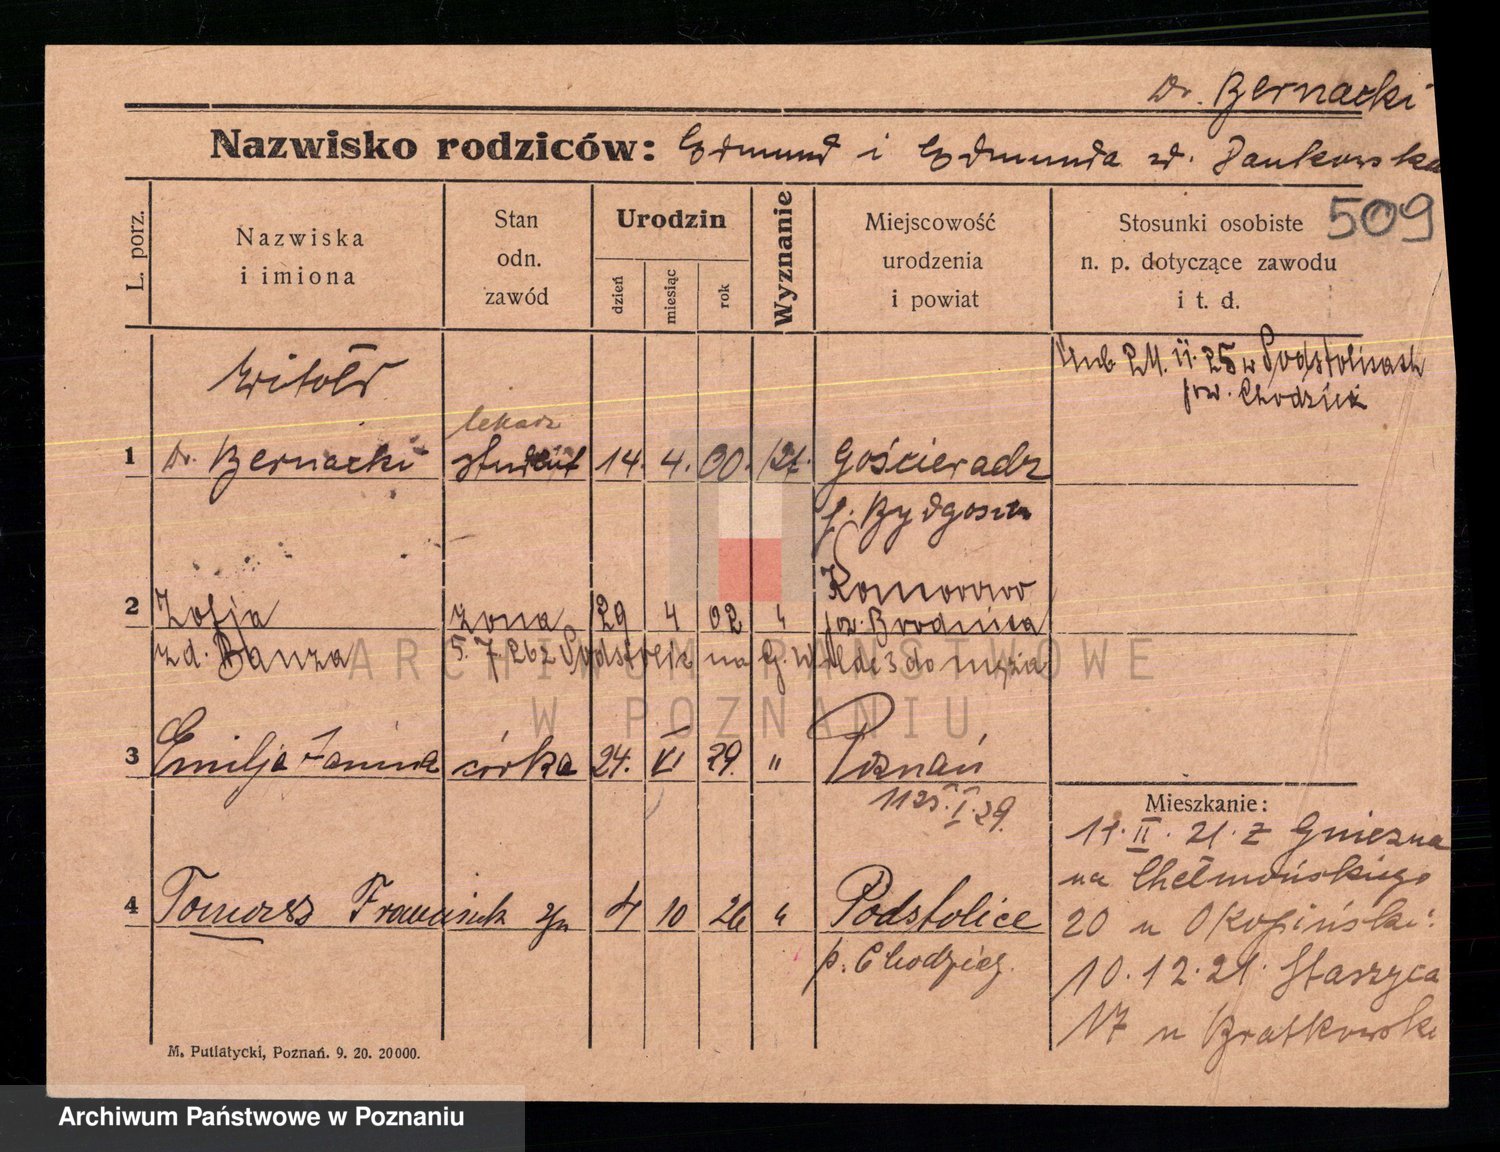 Dr. Bernacki
Nazwisko rodziców: Edmund i Edmunda zd. Jankowska
509
L. porz.
Nazwiska i imiona
Stan odn. zawód
Urodzin
dzień
miesiąc
rok
Wyznanie
Miejscowość urodzenia i powiat
Stosunki osobiste n. p. dotyczące zawodu i t. d.
ślub 24. II. 25 w Podstolicach
pow. Chodzież
Witold
lekarz
1 Dr. Bernacki student 14. 4. 00. rzk. Gościeradz
p. Bydgoszcz
Komorowo
2 Zofja żona 29 4 02 " pow. Brodnica
zd. Banza 5. 7. 26 z Podstolic na G. Wilde 3 do męża
3 Emilja Janina córka 24. VI 29. " Poznań
1125. I. 29.
Mieszkanie:
11. II. 21. z Gniezna
na Chełmońskiego
20 u Okopiński:
10. 12. 21. Staszyca
17 u Bratkowski
4 Tomasz Franciszek syn 4 10 26 " Podstolice
p. Chodzież.
M. Putiatycki, Poznań. 9. 20. 20000.
ARCHIWUM PAŃSTWOWE
W POZNANIU
Archiwum Państwowe w Poznaniu